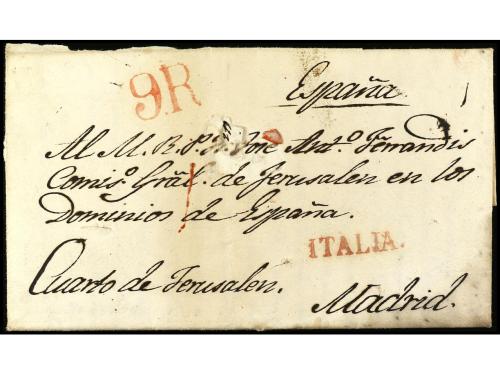 9R
España
Al M. R. P. Fr. Jose Ant.º Ferrandis
Comis.º Gral. de Jerusalen en los
Dominios de España.
ITALIA.
Cuarto de Jerusalen.
Madrid.